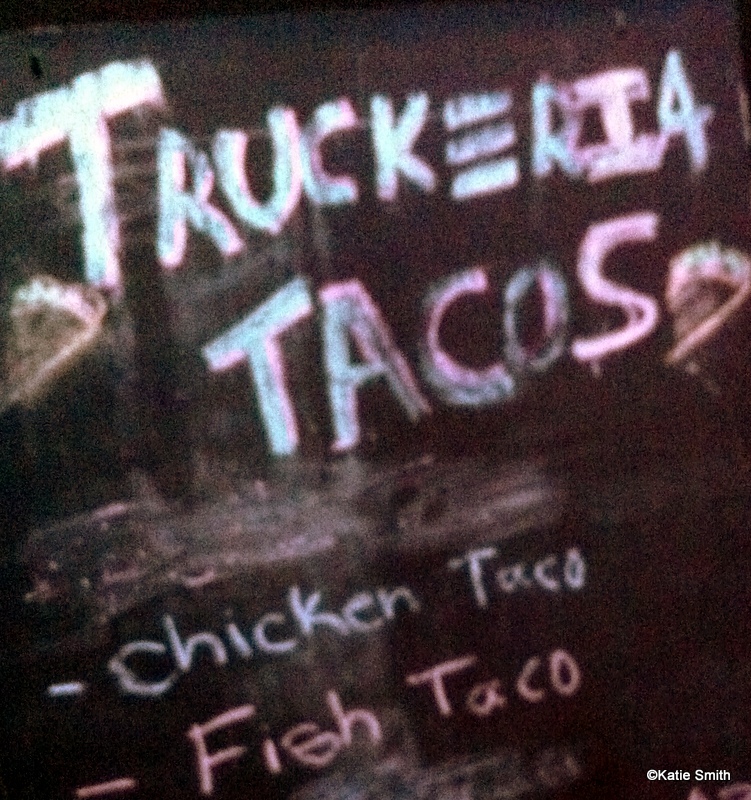 TRUCKERIA
TACOS
- Chicken Taco
- Fish Taco
©Katie Smith